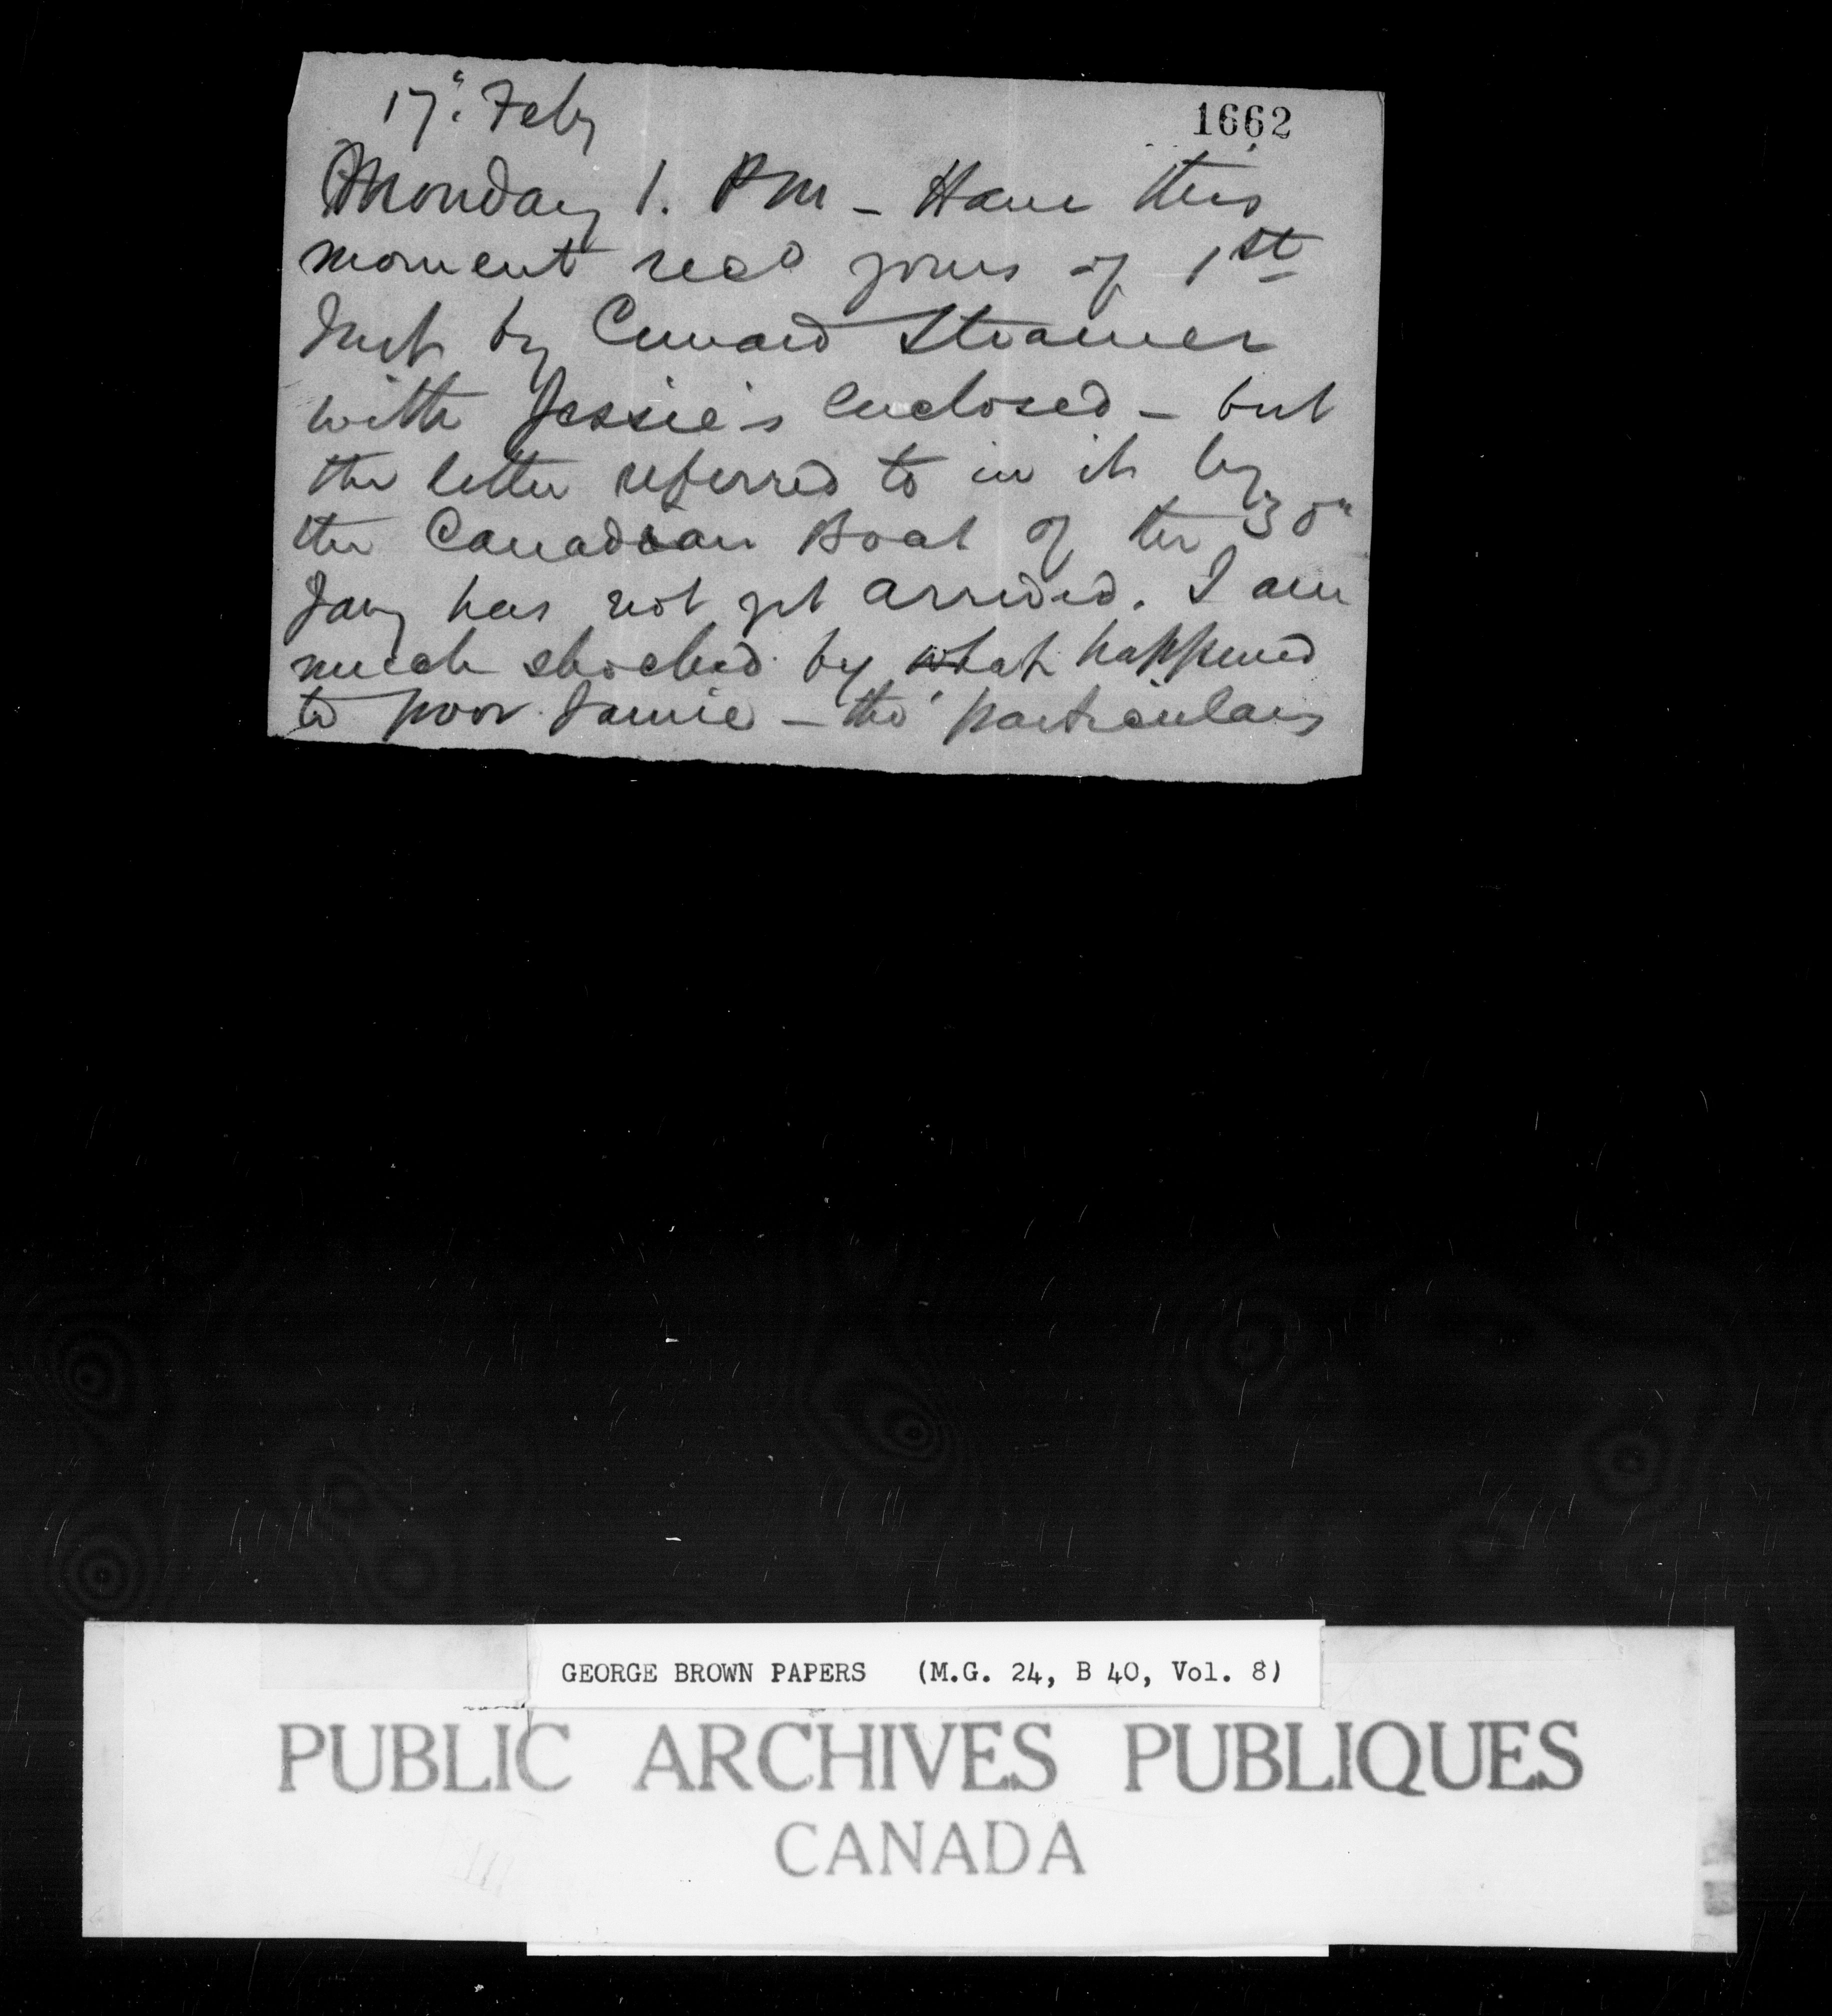 17". Feby
1662
Monday 1. PM - Have this
moment recd yours of 1st
Inst by Cunard Steamer
with Jessie's enclosed - but
the letter referred to in it by
the Canadian Boat of the 30"
Jany has not yet arrived. I am
much shocked by what happened
to poor Jamie - tho' particulars
GEORGE BROWN PAPERS (M.G. 24, B 40, Vol. 8)
PUBLIC ARCHIVES PUBLIQUES
CANADA